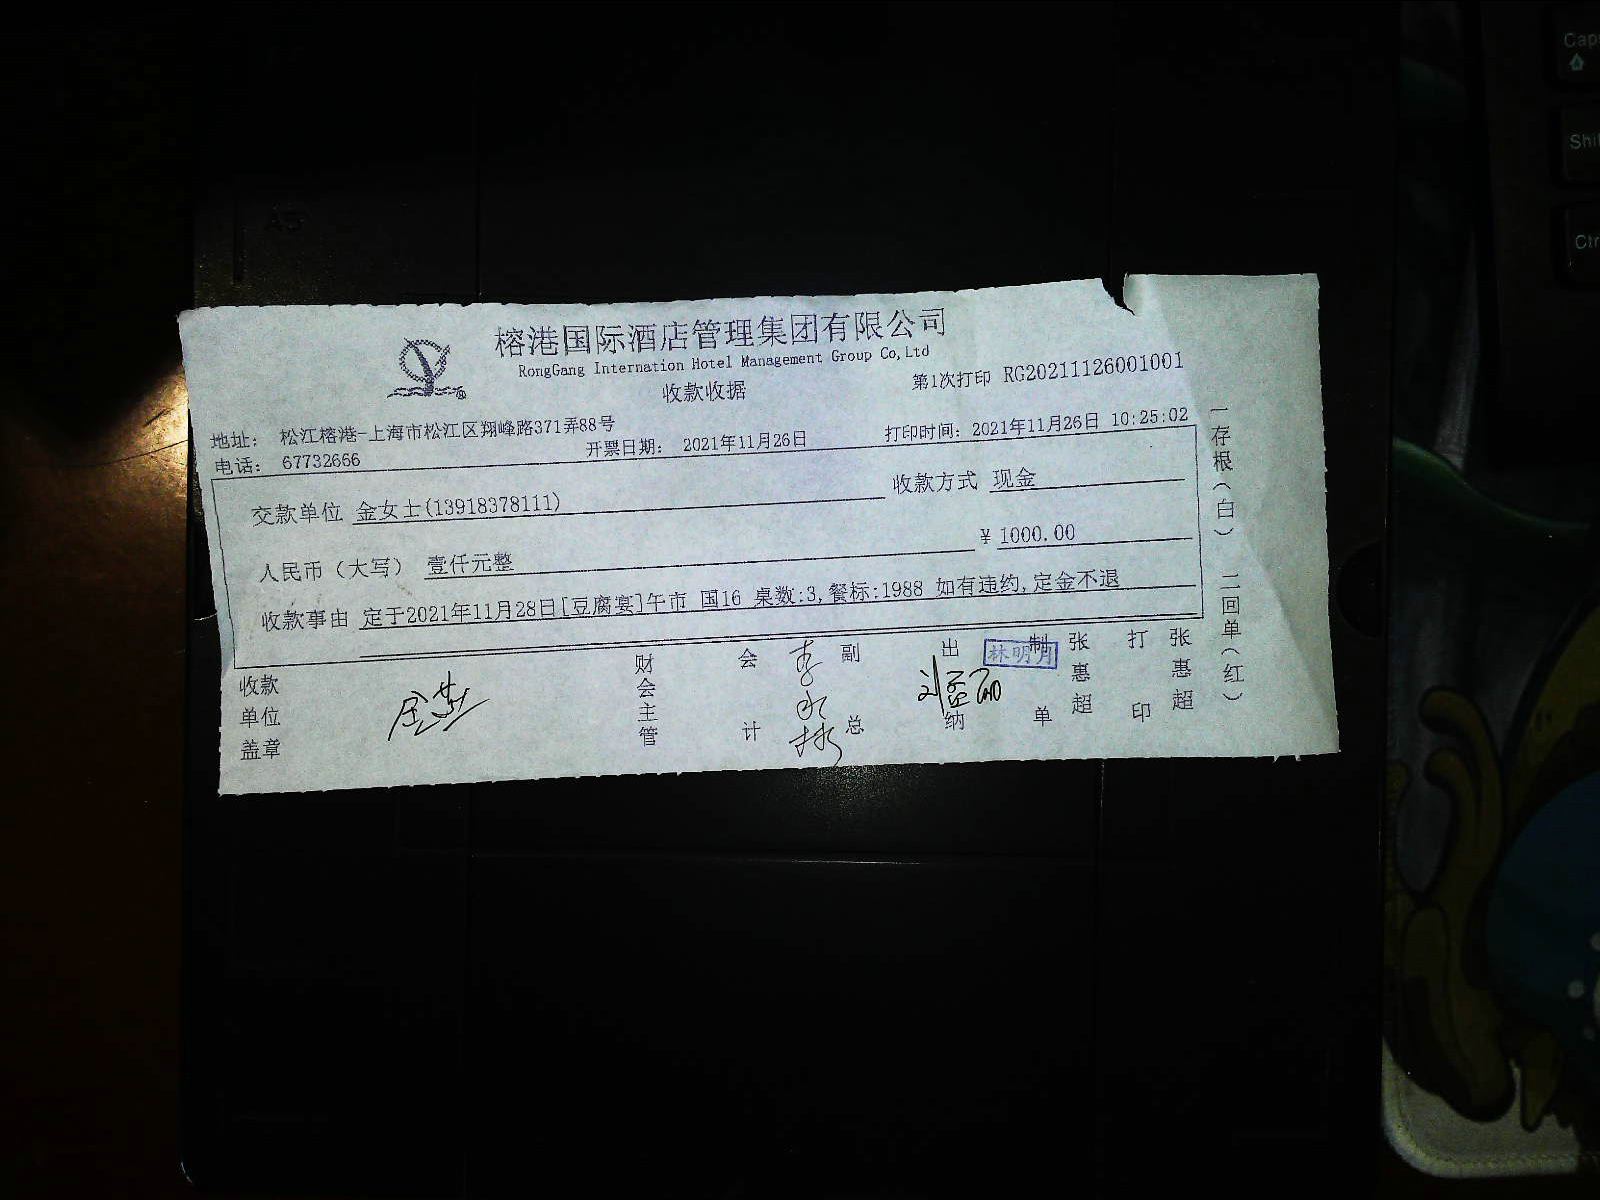 榕港国际酒店管理集团有限公司
RongGang Internation Hotel Management Group Co,Ltd
收款收据
第1次打印 RG20211126001001
地址： 松江榕港-上海市松江区翔峰路371弄88号
电话： 67732666
开票日期： 2021年11月26日
打印时间：2021年11月26日 10:25:02
交款单位 金女士(13918378111)
收款方式 现金
人民币（大写） 壹仟元整
¥ 1000.00
收款事由 定于2021年11月28日[豆腐宴]午市 国16 桌数:3,餐标:1988 如有违约,定金不退
收款单位盖章
财会主管
会计
李
副总
出纳
林明月
制单 张惠超
打印 张惠超
一存根（白） 二回单（红）
A5
Cap
Shi
Ctr